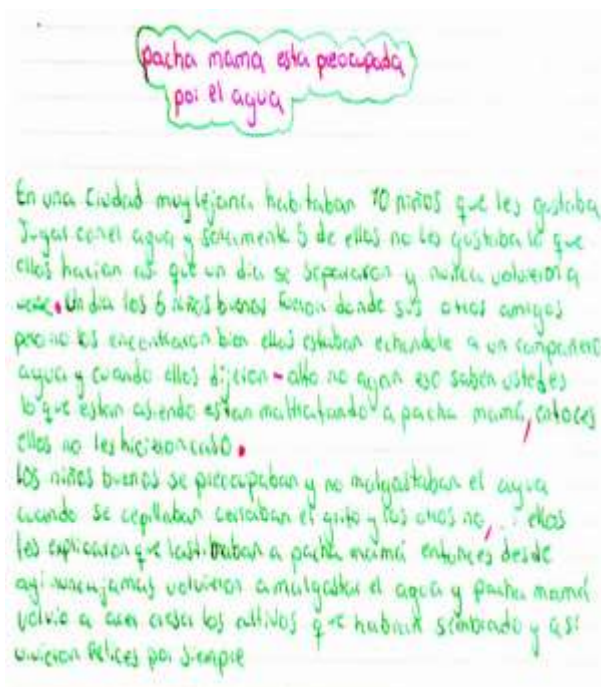 pacha mama esta preocupada
por el agua
En una Ciudad muy lejana habitaban 10 niños que les gustaba
Jugar con el agua y solamente 5 de ellos no les gustaba lo que
ellos hacian asi que un dia se separaron y nunca volvieron a
verse. Un dia los 5 niños buenos fueron donde sus otros amigos
pero no los encontraron bien ellos estaban echandole a un compañero
agua y cuando ellos dijeron - alto no agan eso saben ustedes
lo que estan asiendo estan maltratando a pacha mama, entoces
ellos no les hicieron caso.
Los niños buenos se preocupaban y no malgastaban el agua
cuando se cepillaban cerraban el grifo y los otros no, . . ellos
les explicaron que lastimaban a pacha mamá entonces desde
agi nunca jamas volvieron a malgastar el agua y pacha mamá
volvio a acer creser los cultivos que habian sembrado y asi
vivieron felices por siempre